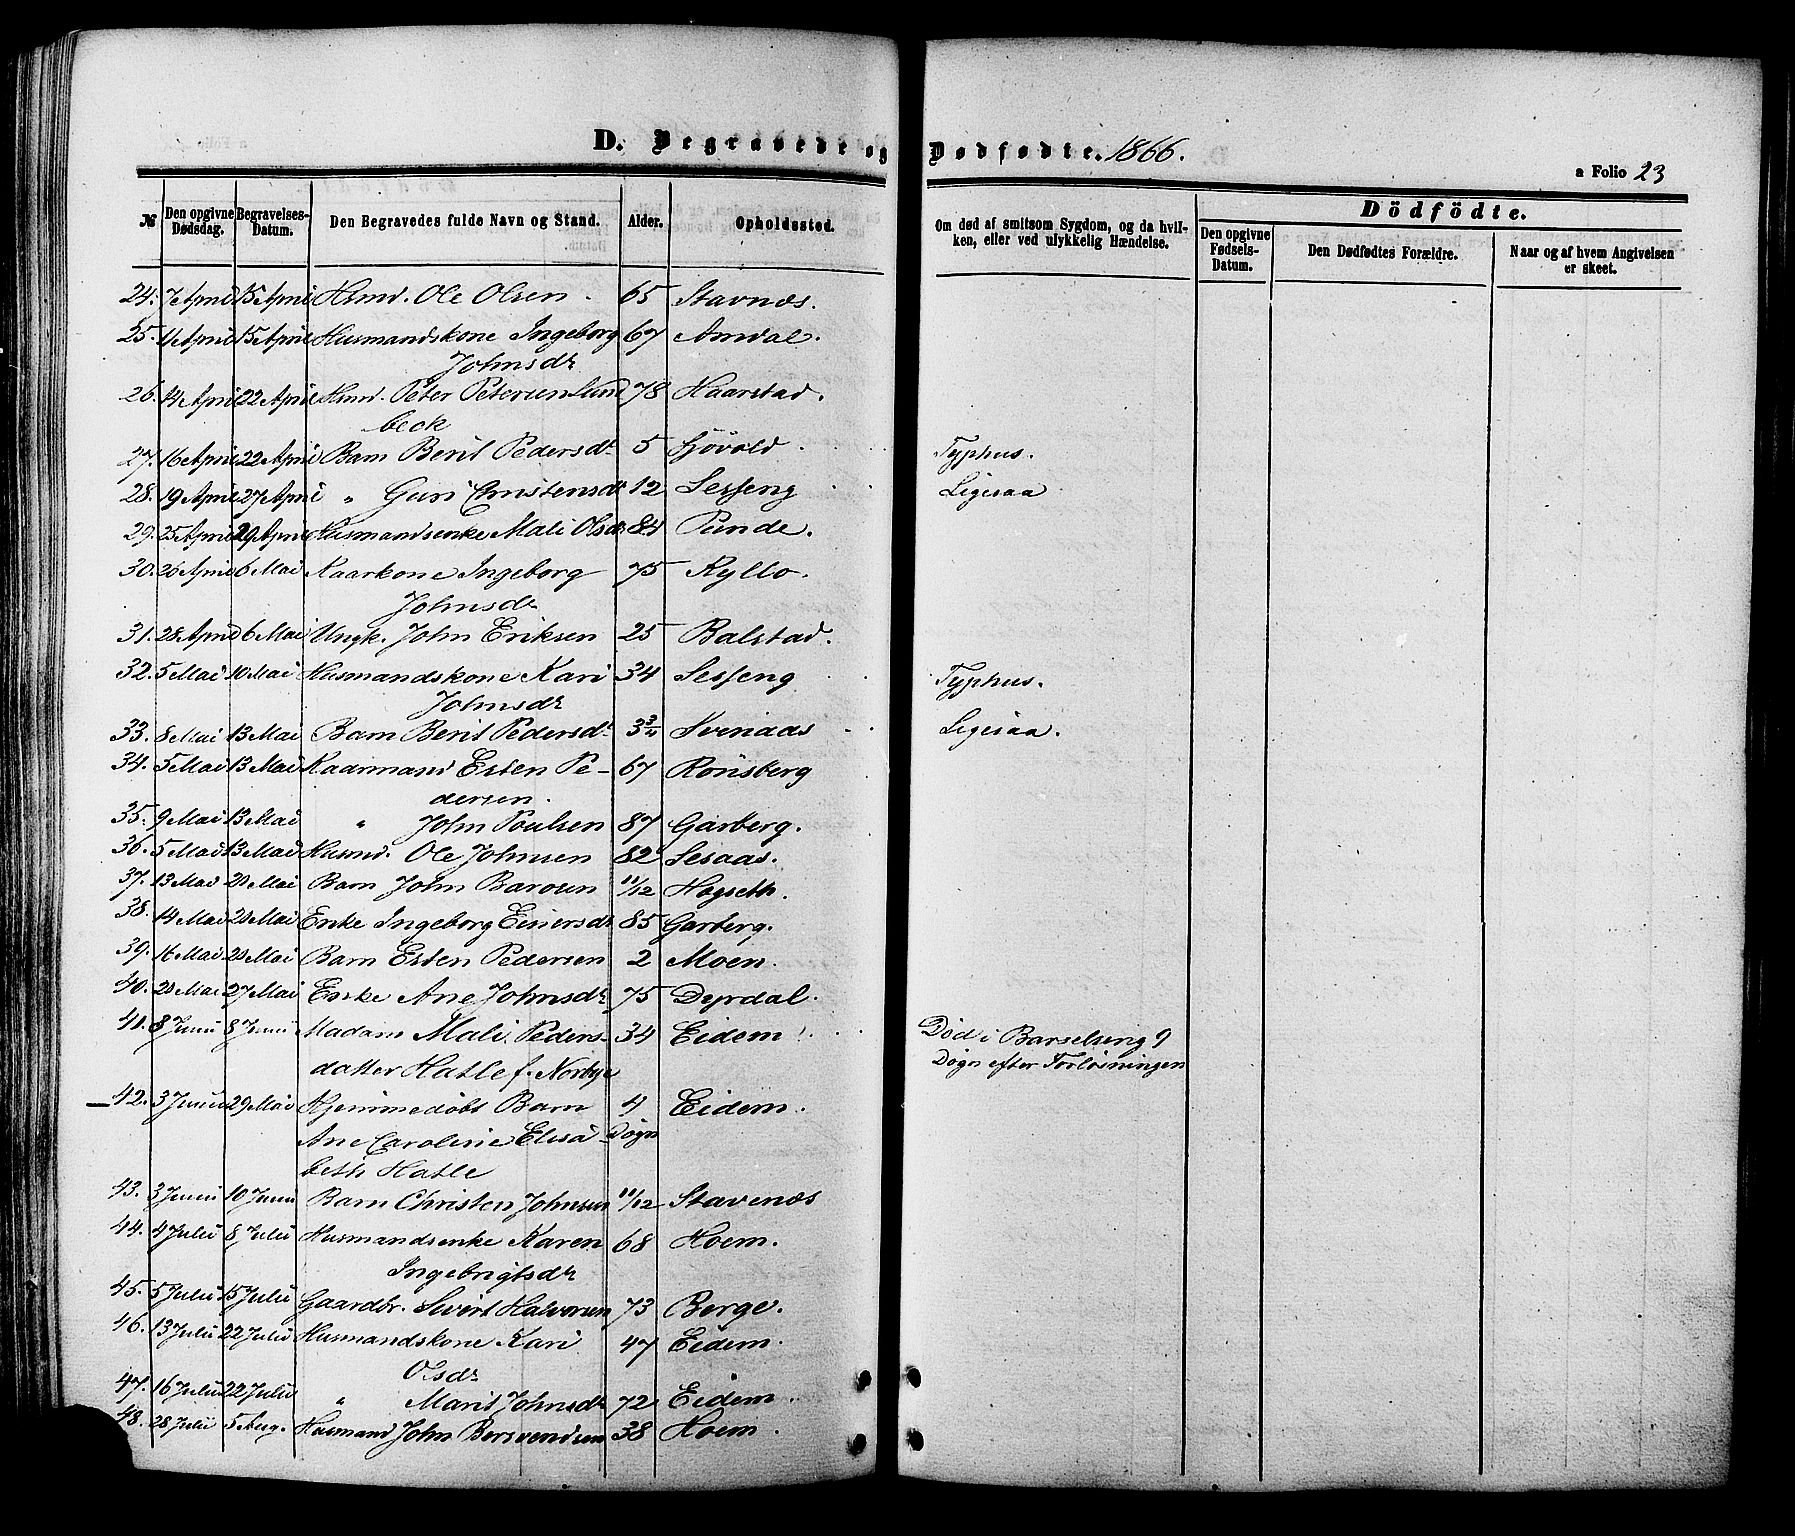 D. Begravede og Dødfødte. 1866.
a Folio 23
№ Den opgivne Dødsdag. Begravelses-Datum. Den Begravedes fulde Navn og Stand. Alder. Opholdssted. Om død af smitsom Sygdom, og da hvil-
ken, eller ved ulykkelig Hændelse.
Dödfödte.
Den opgivne Fødsels-Datum. Den Dødfødtes Forældre. Naar og af hvem Angivelsen er skeet.
24. 7 April 15 April Husmd. Ole Olsen. 65 Stavnæs.
25. 11 April 15 April Husmandskone Ingeborg 67 Amdal.
Johnsdr
26. 14 April 22 April Husmd. Peter Petersen Lund 78 Haarstad.
beck
27. 16 April 22 April Barn Berit Pedersdr 5 Sjøvold Typhus.
28. 19 April 27 April " Guri Christensdr 12 Sesseng Ligesaa
29. 25 April 29 April Husmandsenke Mali Olsdr 84 Punde.
30. 26 April 6 Mai Kaarkone Ingeborg 75 Kyllo.
Johnsdr
31. 28 April 6 Mai Ungk. John Eriksen 25 Balstad.
32. 5 Mai 10 Mai Husmandskone Kari 34 Sesseng Typhus.
Johnsdr
33. 8 Mai 13 Mai Barn Berit Pedersdr 3 3/4 Svinaas Ligesaa.
34. 5 Mai 13 Mai Kaarmand Esten Pe- 67 Rönsberg
dersen.
35. 9 Mai 13 Mai " John Poulsen 87 Garberg.
36. 5 Mai 13 Mai Husmd. Ole Johnsen 82 Sesaas.
37. 13 Mai 21 Mai Barn John Barosen 11/12 Hogseth.
38. 14 Mai 21 Mai Enke Ingeborg Einersdr 85 Garberg.
39. 16 Mai 21 Mai Barn Esten Pedersen 2 Moen.
40. 21 Mai 27 Mai Enke Ane Johnsdr 75 Dyrdal.
41. 8 Juni 8 Juni Madam Mali Peders- 34 Eidem Død i Barselseng 9
datter Hatle f. Norbye Døgn efter Forløsningen
42. 3 Juni 29 Mai Hjemmedøbt Barn 4 Eidem.
Ane Caroline Elisa- Døgn
beth Hatle
43. 3 Juni 10 Juni Barn Christen Johnsen 11/12 Stavenæs
44. 4 Juli 8 Juli Husmandsenke Karen 68 Hoem.
Ingebrigtsdr
45. 5 Juli 15 Juli Gaardbr. Sivert Halvorsen 73 Berge.
46. 13 Juli 22 Juli Husmandskone Kari 47 Eidem.
Olsdr
47. 16 Juli 22 Juli " Marit Johnsdr 72 Eidem.
48. 28 Juli 5 Aug. Husmand John Bersvendsen 38 Hoem.